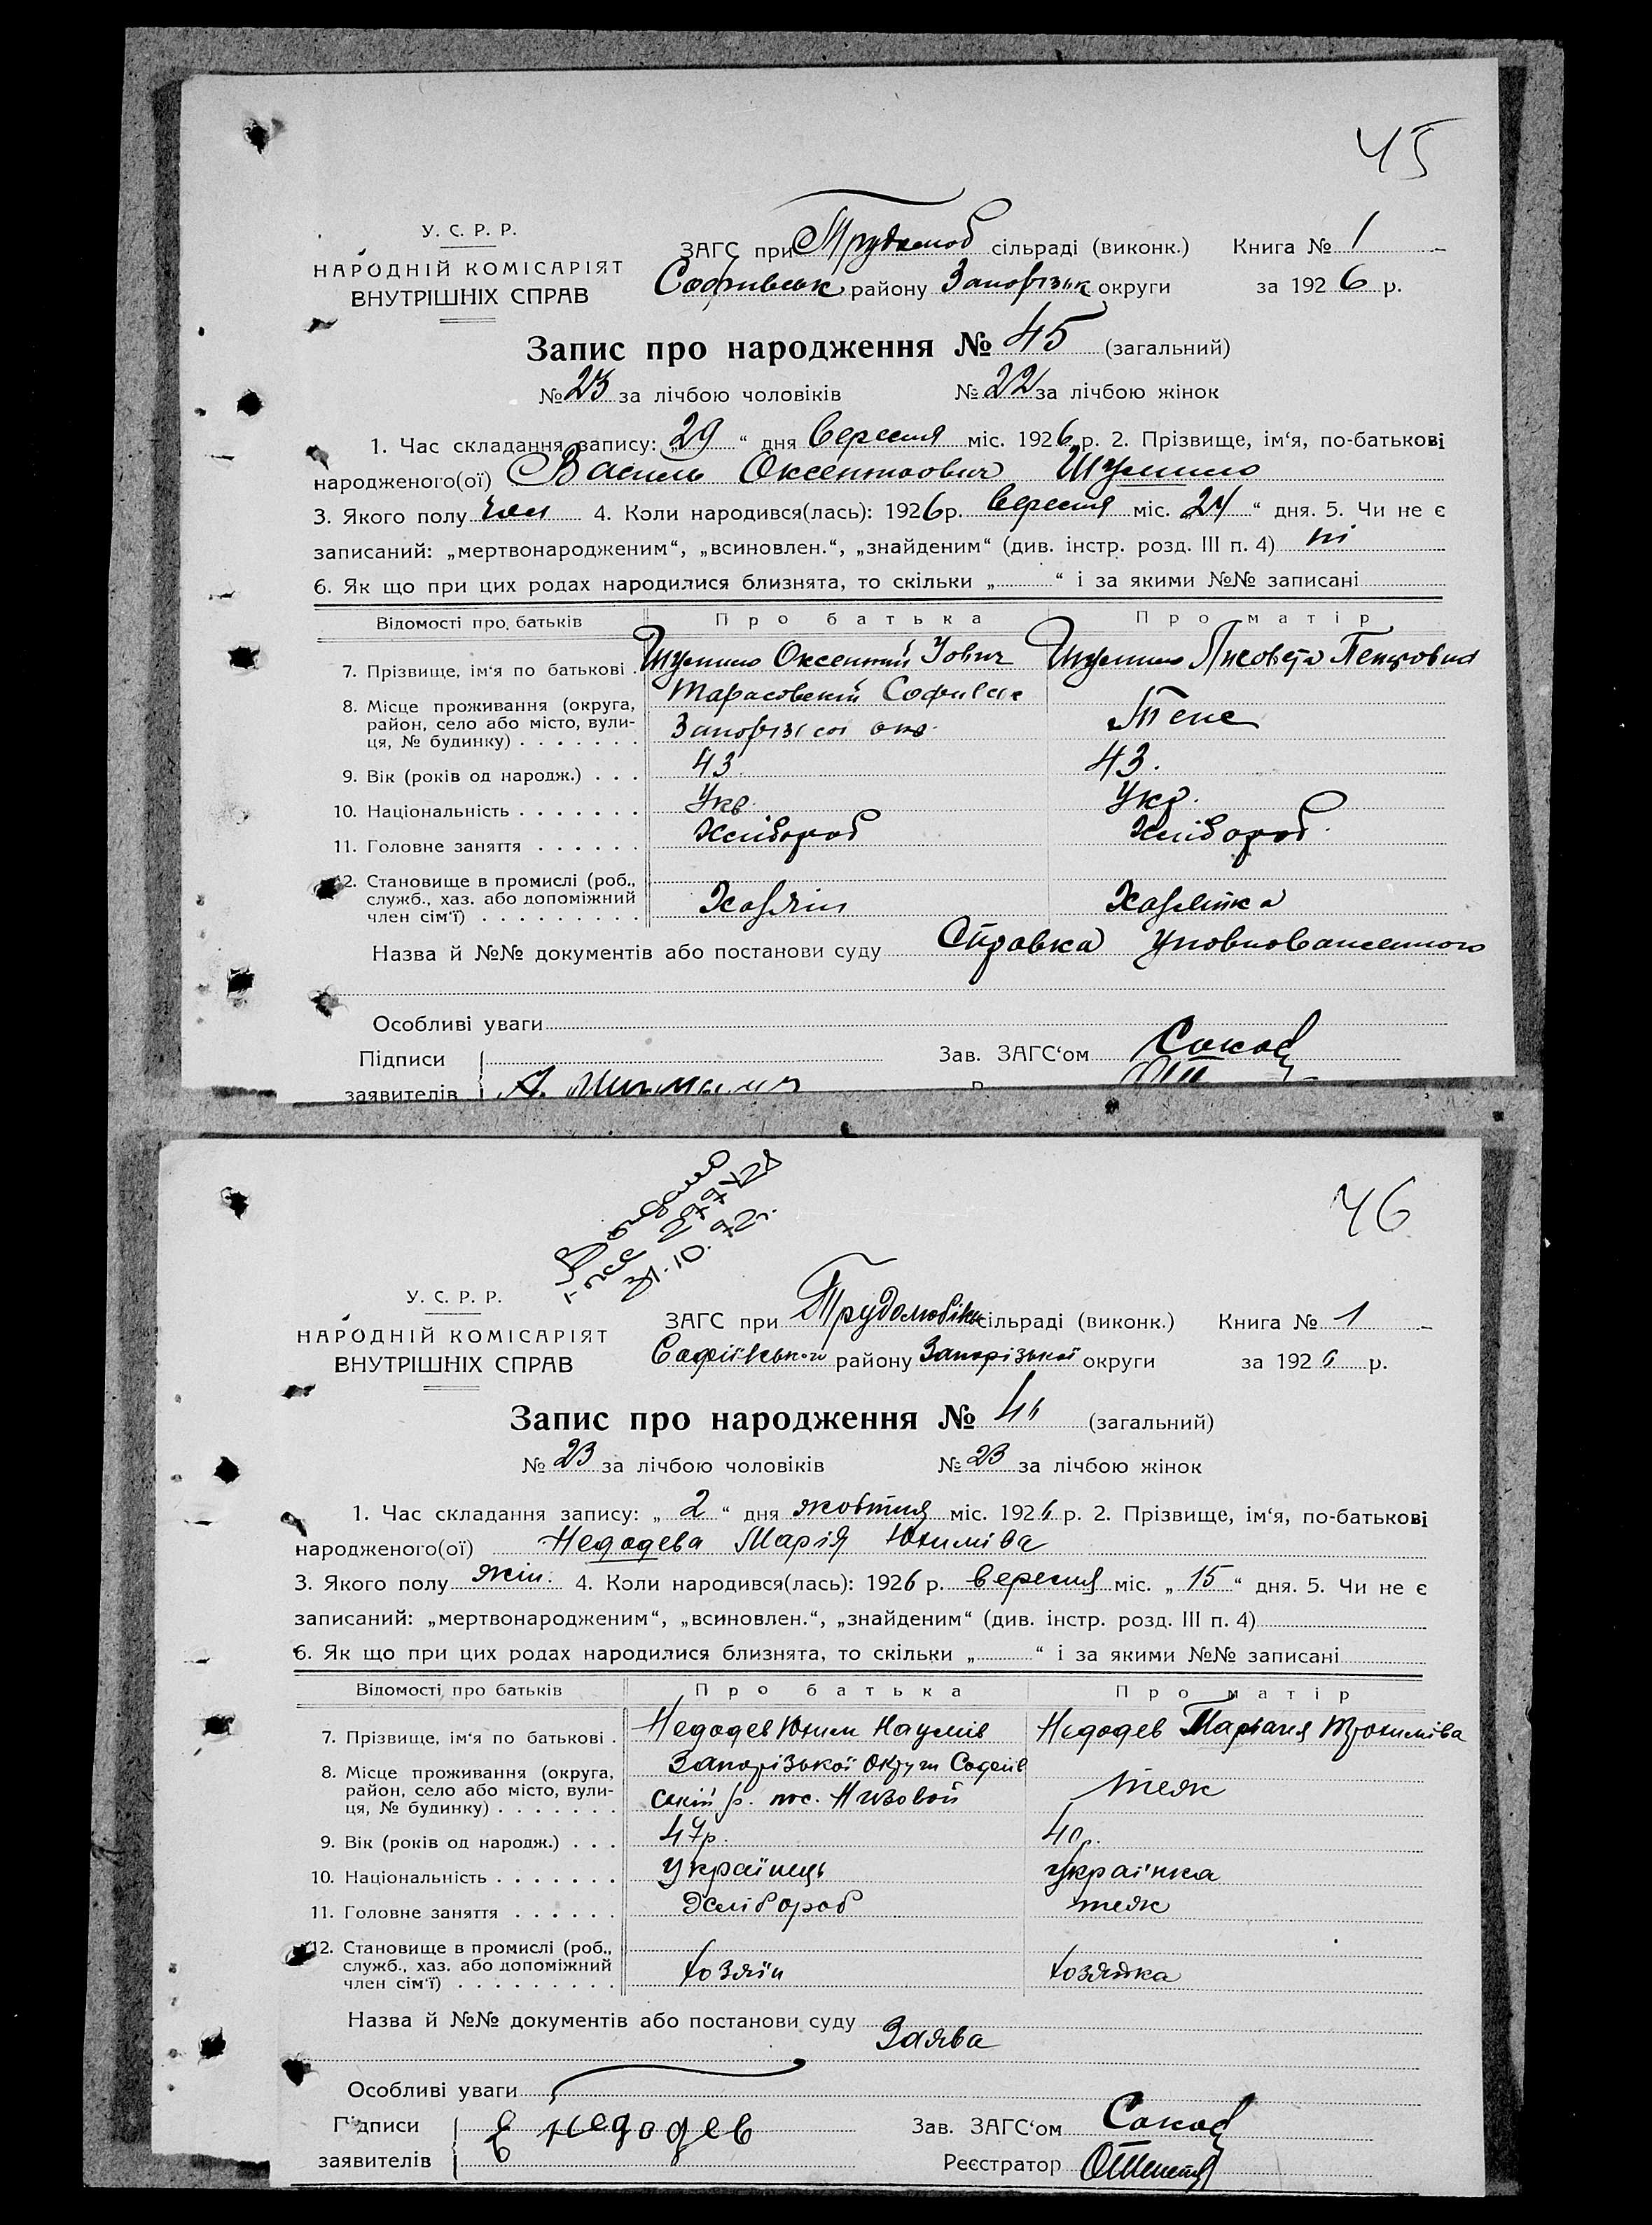 45
У. С. Р. Р.
НАРОДНІЙ КОМІСАРІЯТ
ВНУТРІШНІХ СПРАВ
ЗАГС при Трудолюб сільраді (виконк.) Книга № 1
Софиівськ району Запорізьк округи за 1926 р.
Запис про народження № 45 (загальний)
№ 23 за лічбою чоловіків № 22 за лічбою жінок
1. Час складання запису: „29“ дня вересня міс. 1926 р. 2. Прізвище, ім‘я, по-батькові
народженого(ої) Василь Оксентиович
3. Якого полу чол 4. Коли народився(лась): 1926 р. вересня міс. „24“ дня. 5. Чи не є
записаний: „мертвонародженим“, „всиновлен.“, „знайденим“ (див. інстр. розд. III п. 4) ні
6. Як що при цих родах народилися близнята, то скільки „ “ і за якими №№ записані
Відомості про батьків Про батька Про матір
7. Прізвище, ім‘я по батькові . Оксентий Іович
8. Місце проживання (округа, район, село або місто, вулиця, № будинку) Тарасовский Софиівськ
Запорізької окр. Теж
9. Вік (років од народж.) . . . 43 43.
10. Національність . . . . . . . Укр. Укр.
11. Головне заняття . . . . . . Хлібороб Хлібороб.
12. Становище в промислі (роб.,
служб., хаз. або допоміжний
член сім‘ї) . . . . . . . . . Хазяїн Хазяйка
Назва й №№ документів або постанови суду Справка уповноваженного
Особливі уваги
Підписи Зав. ЗАГС‘ом Сокол
заявителів А.
46
Выдано
31.10.
У. С. Р. Р.
НАРОДНІЙ КОМІСАРІЯТ
ВНУТРІШНІХ СПРАВ
ЗАГС при Трудолюбівк сільраді (виконк.) Книга № 1
Софіївського району Запорізької округи за 1926 р.
Запис про народження № 46 (загальний)
№ 23 за лічбою чоловіків № 23 за лічбою жінок
1. Час складання запису: „ 2 “ дня жовтня міс. 1926 р. 2. Прізвище, ім‘я, по-батькові
народженого(ої) Недодева Марія Юхиміва
3. Якого полу жін. 4. Коли народився(лась): 1926 р. вересня міс. „ 15 “ дня. 5. Чи не є
записаний: „мертвонародженим“, „всиновлен.“, „знайденим“ (див. інстр. розд. III п. 4)
6. Як що при цих родах народилися близнята, то скільки „ “ і за якими №№ записані
Відомості про батьків Про батька Про матір
7. Прізвище, ім‘я по батькові . Недодев Юхим Наумів Недодев Трохиміва
8. Місце проживання (округа, Запорізької округи Софіїв
район, село або місто, вули-
ця, № будинку) . . . . . . . ський р. пос. Низовой теж
9. Вік (років од народж.) . . . 47р. 40р.
10. Національність . . . . . . . українець українка
11. Головне заняття . . . . . . Хлібороб теж
12. Становище в промислі (роб.,
служб., хаз. або допоміжний
член сім‘ї) . . . . . . . . . хозяїн хозяйка
Назва й №№ документів або постанови суду Заява
Особливі уваги
Підписи Е Недодев Зав. ЗАГС‘ом Сокол
заявителів Реєстратор